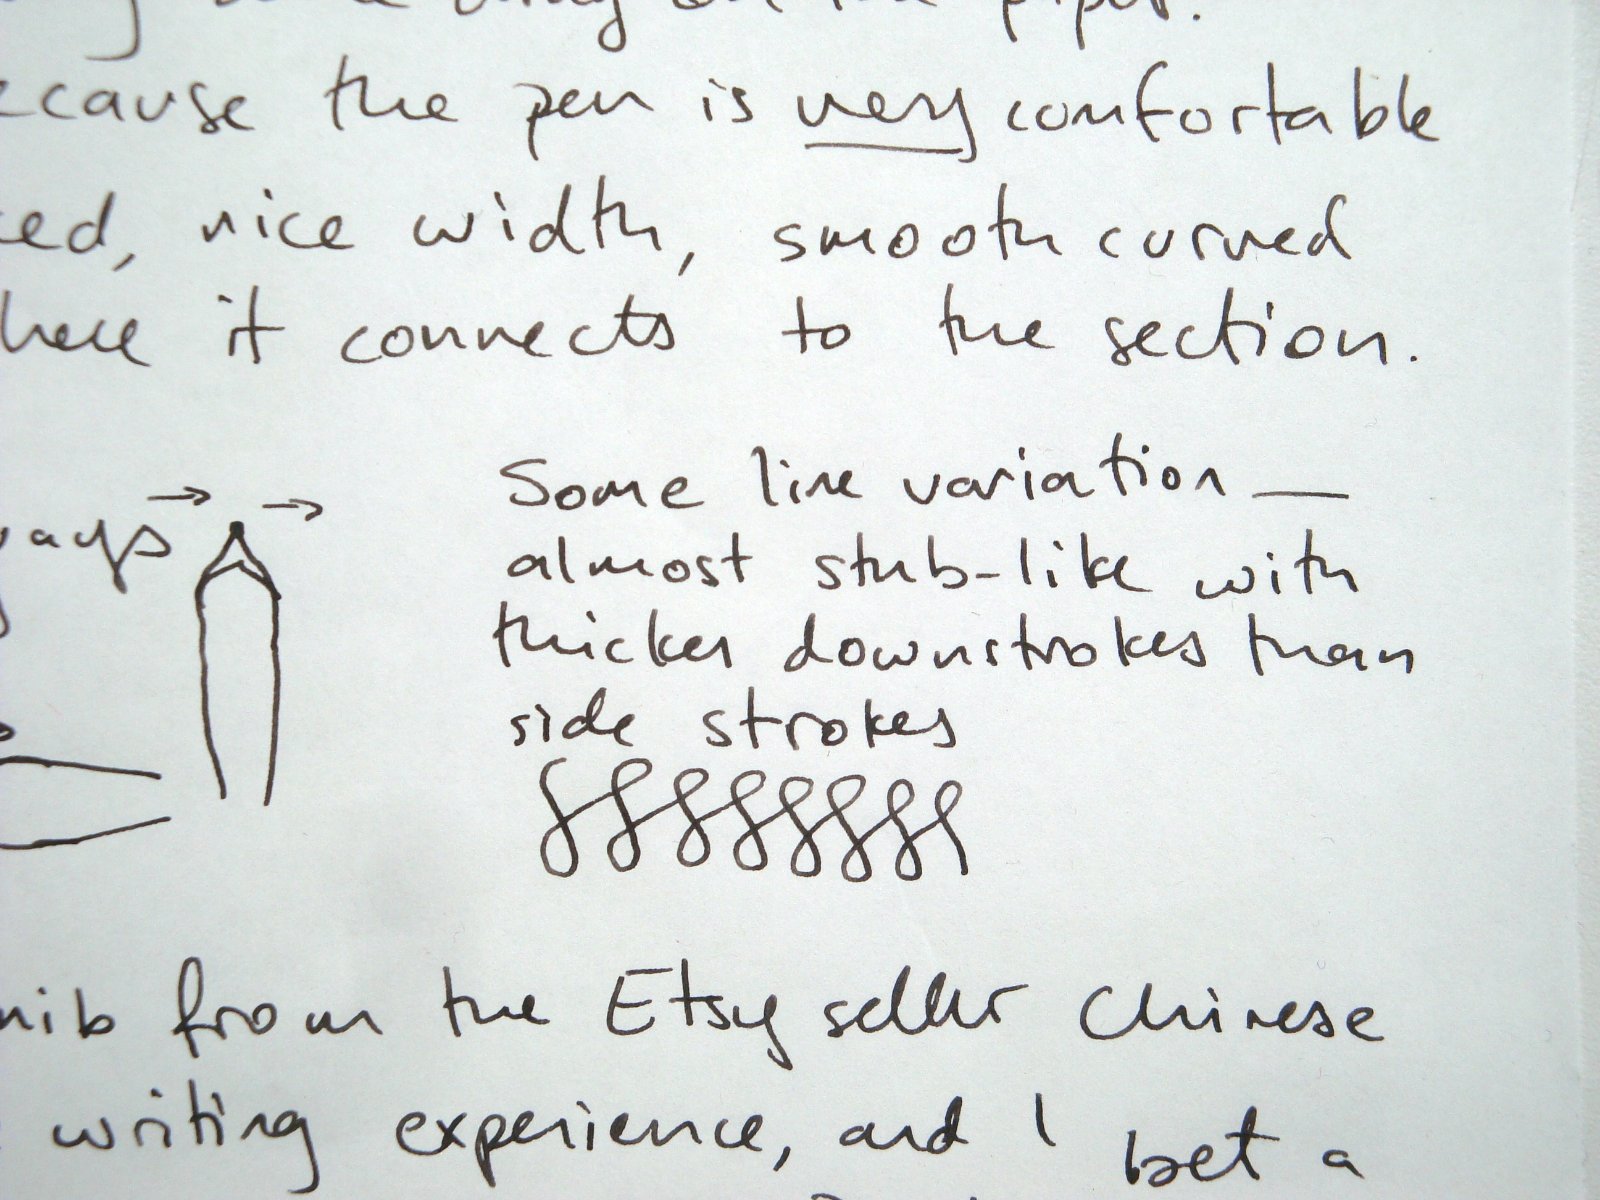 on the paper.
ecause the pen is very comfortable
ced, nice width, smooth curved
here it connects to the section.
ways
Some line variation —
almost stub-like with
thicker downstrokes than
side strokes
nib from the Etsy seller Chinese
writing experience, and I bet a